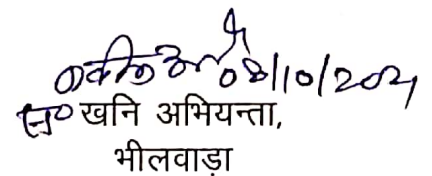 08/10/2021
स० खनि अभियन्ता,
भीलवाड़ा